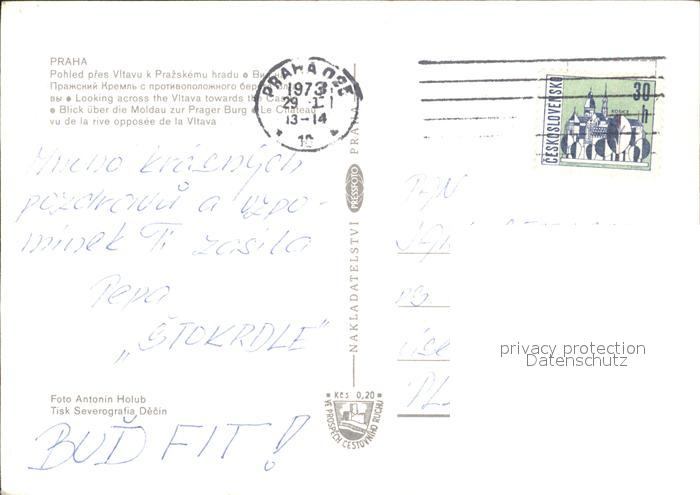 PRAHA
Pohled přes Vltavu k Pražskému hradu ● Ви
Пражский Кремль с противоположного бер
вы ● Looking across the Vltava towards the Cas
● Blick über die Moldau zur Prager Burg ● Le Château
vu de la rive opposée de la Vltava
PRAHA 025
1973
29.
13-14
10
ČESKOSLOVENSKO
30
h
Mnoho krásných
pozdravů a vzpo-
mínek Ti zasílá
Pepa
„ŠTOKRDLE"
Foto Antonín Holub
Tisk Severografia Děčín
BUĎ FIT!
NAKLADATELSTVÍ PRESSFOTO PRAHA
Kčs 0,20
VE PROSPĚCH CESTOVNÍHO RUCHU
PAN
privacy protection
Datenschutz